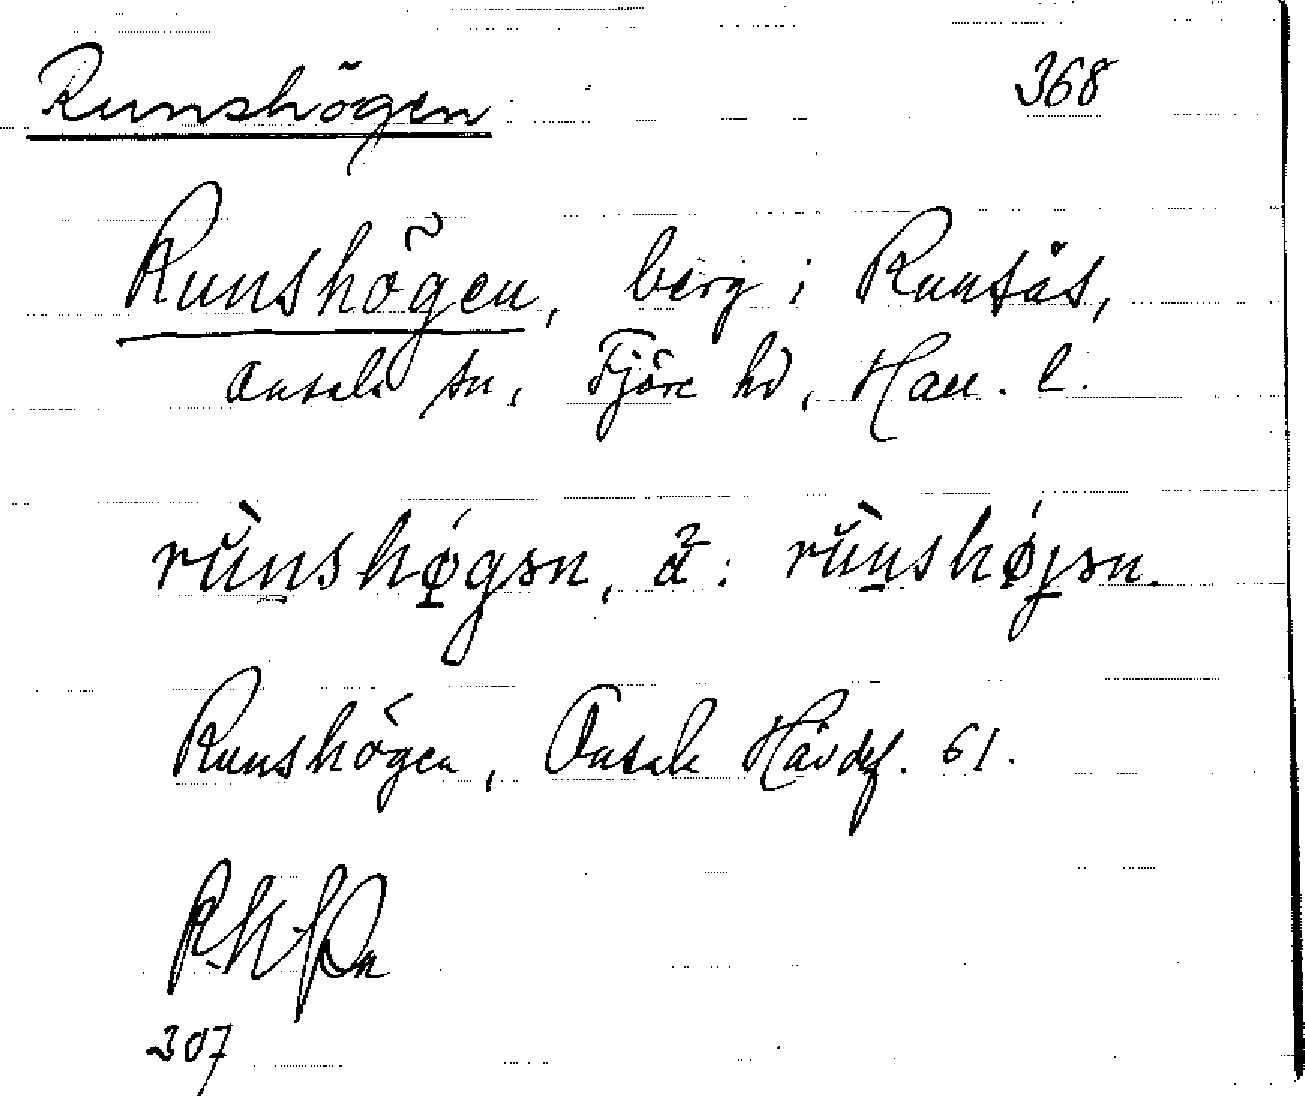 Runshögen 368
Runshögen, berg i Runsås,
Onsala sn, Fjäre hd, Hall. l.
rùnshø̲gən, ä: rùnshø̲jən.
Runshögen, Onsala Hävdef. 61.
307